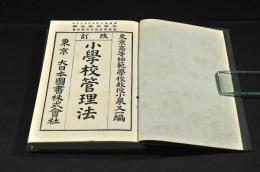 東京高等師範學校教授小泉又一編
改訂
小學校管理法
東京 大日本圖書株式會社